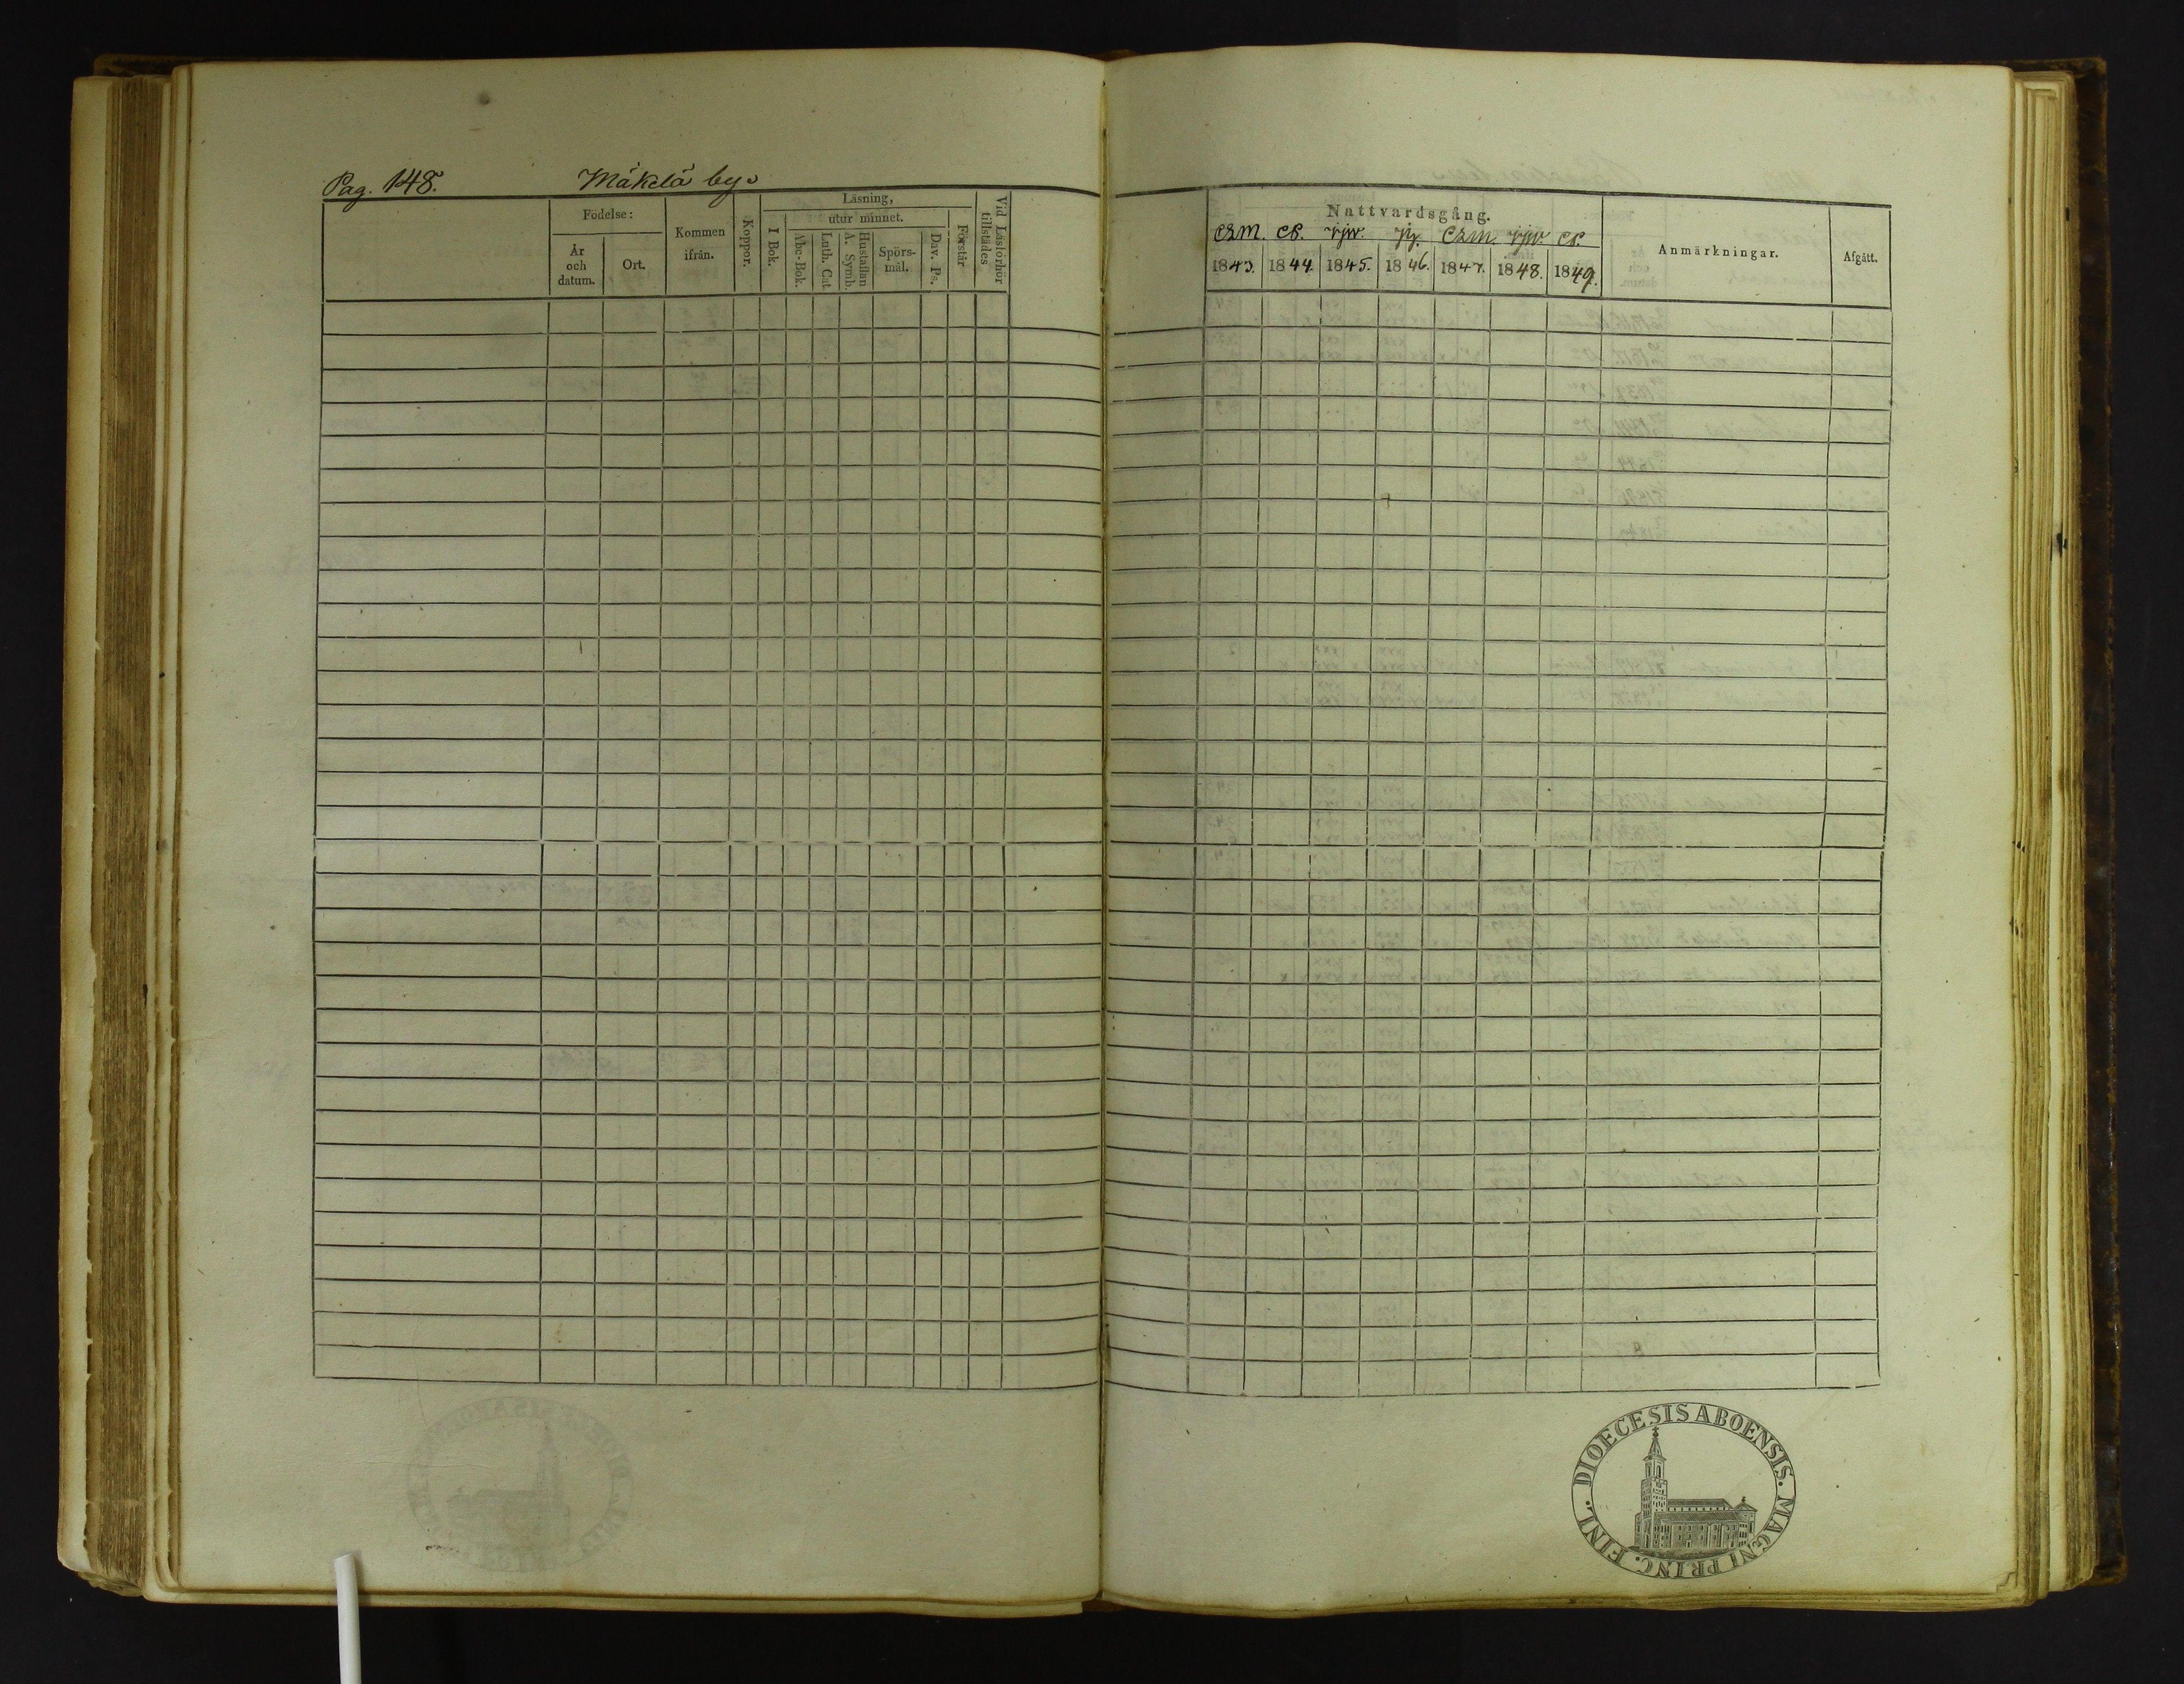 Pag. 148. Mäkelä by.
Födelse:
År och datum.
Ort.
Kommen ifrån.
Koppor.
Läsning,
I Bok.
utur minnet.
Abc-Bok.
Luth. Cat.
Hustaflan A. Symb.
Spörsmål.
Dav. Ps.
Förstår
Vid Läsförhör tillstädes
Nattvardsgång.
1843. 1844. 1845. 1846. 1847. 1848. 1849.
Anmärkningar.
Afgått.
DIOECESIS ABOENSIS. MAGNI PRINC. FINL.